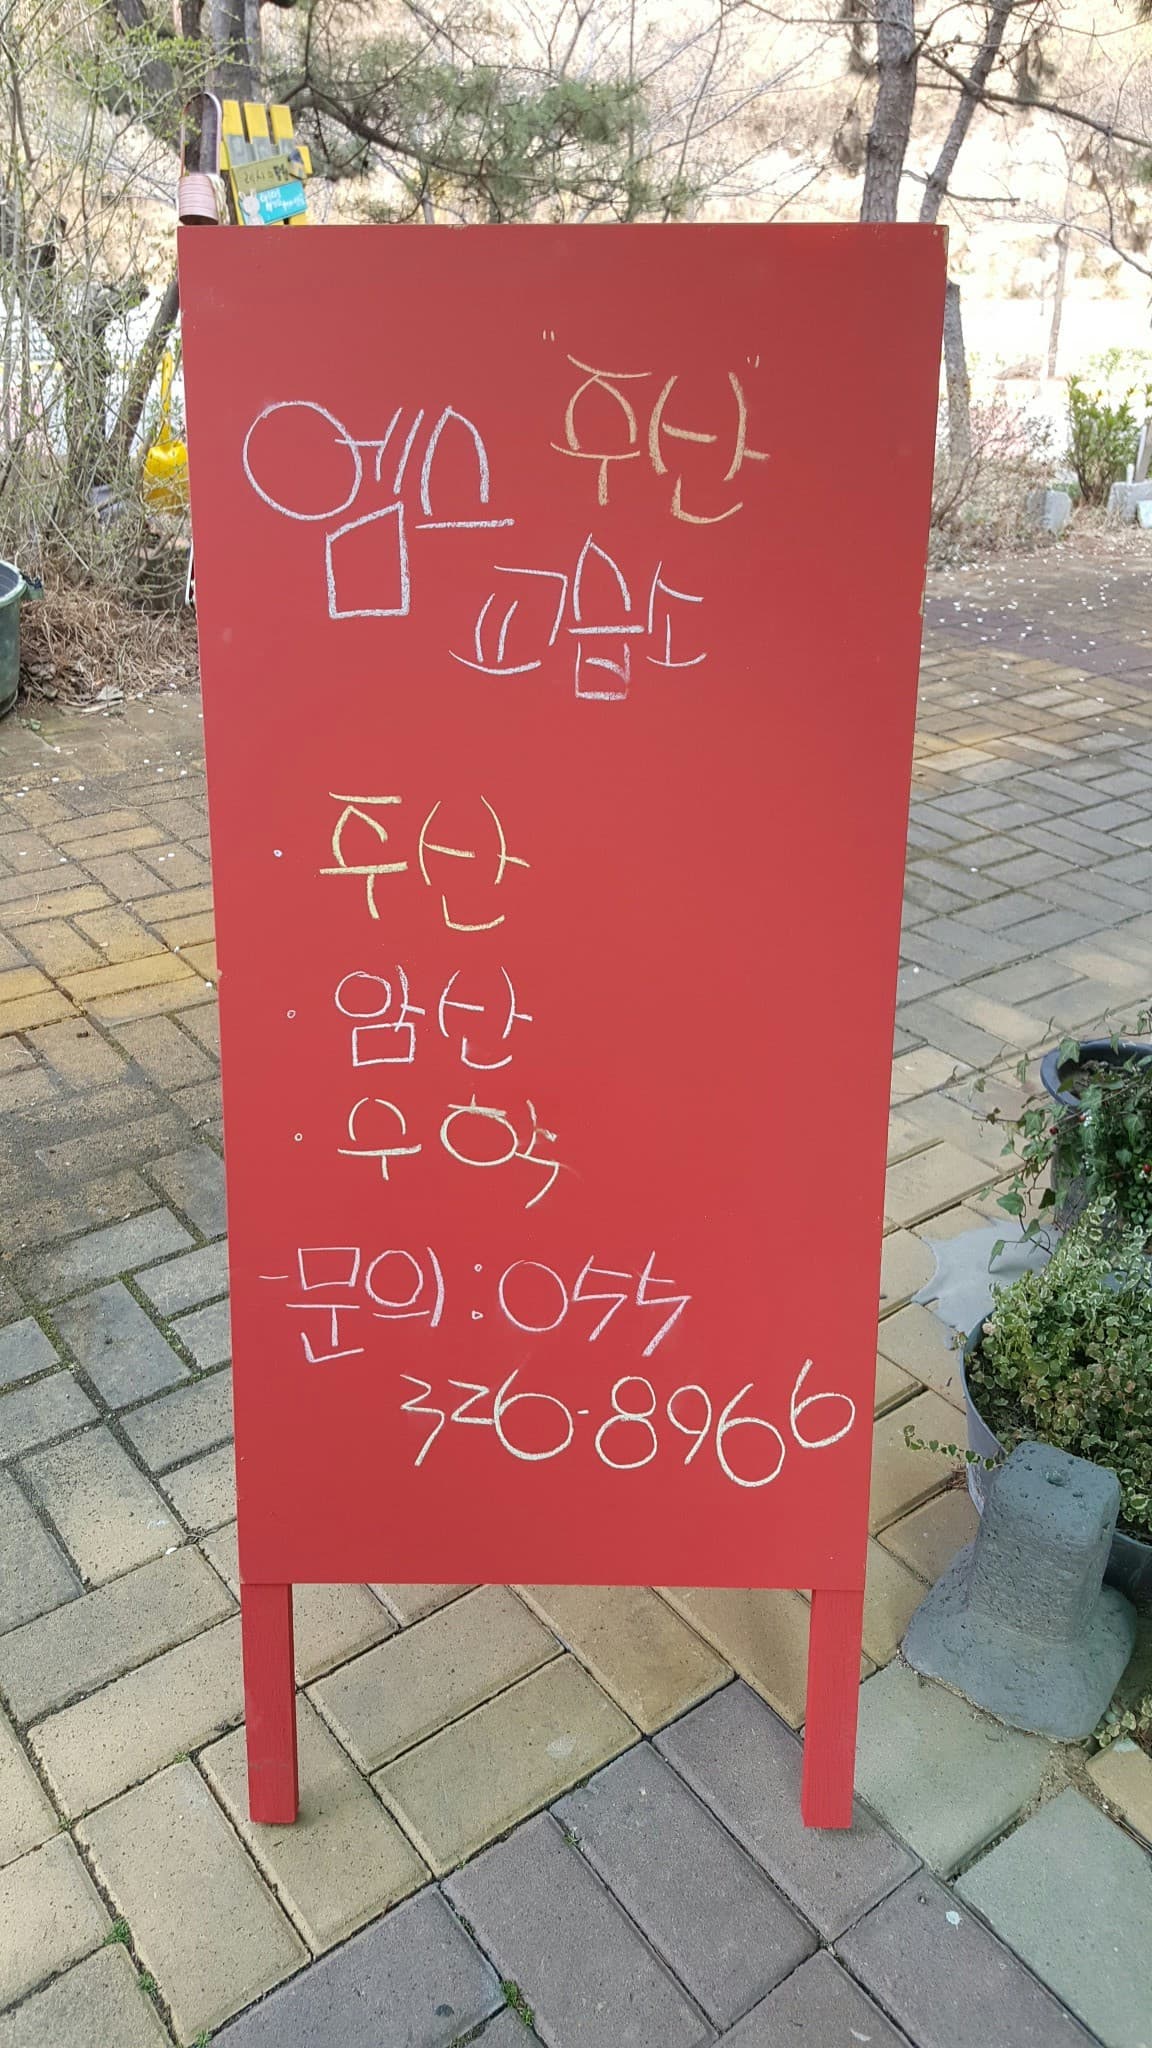 엠스 "주산"
교습소
· 주산
· 암산
· 수학
- 문의 : 055
326-8966